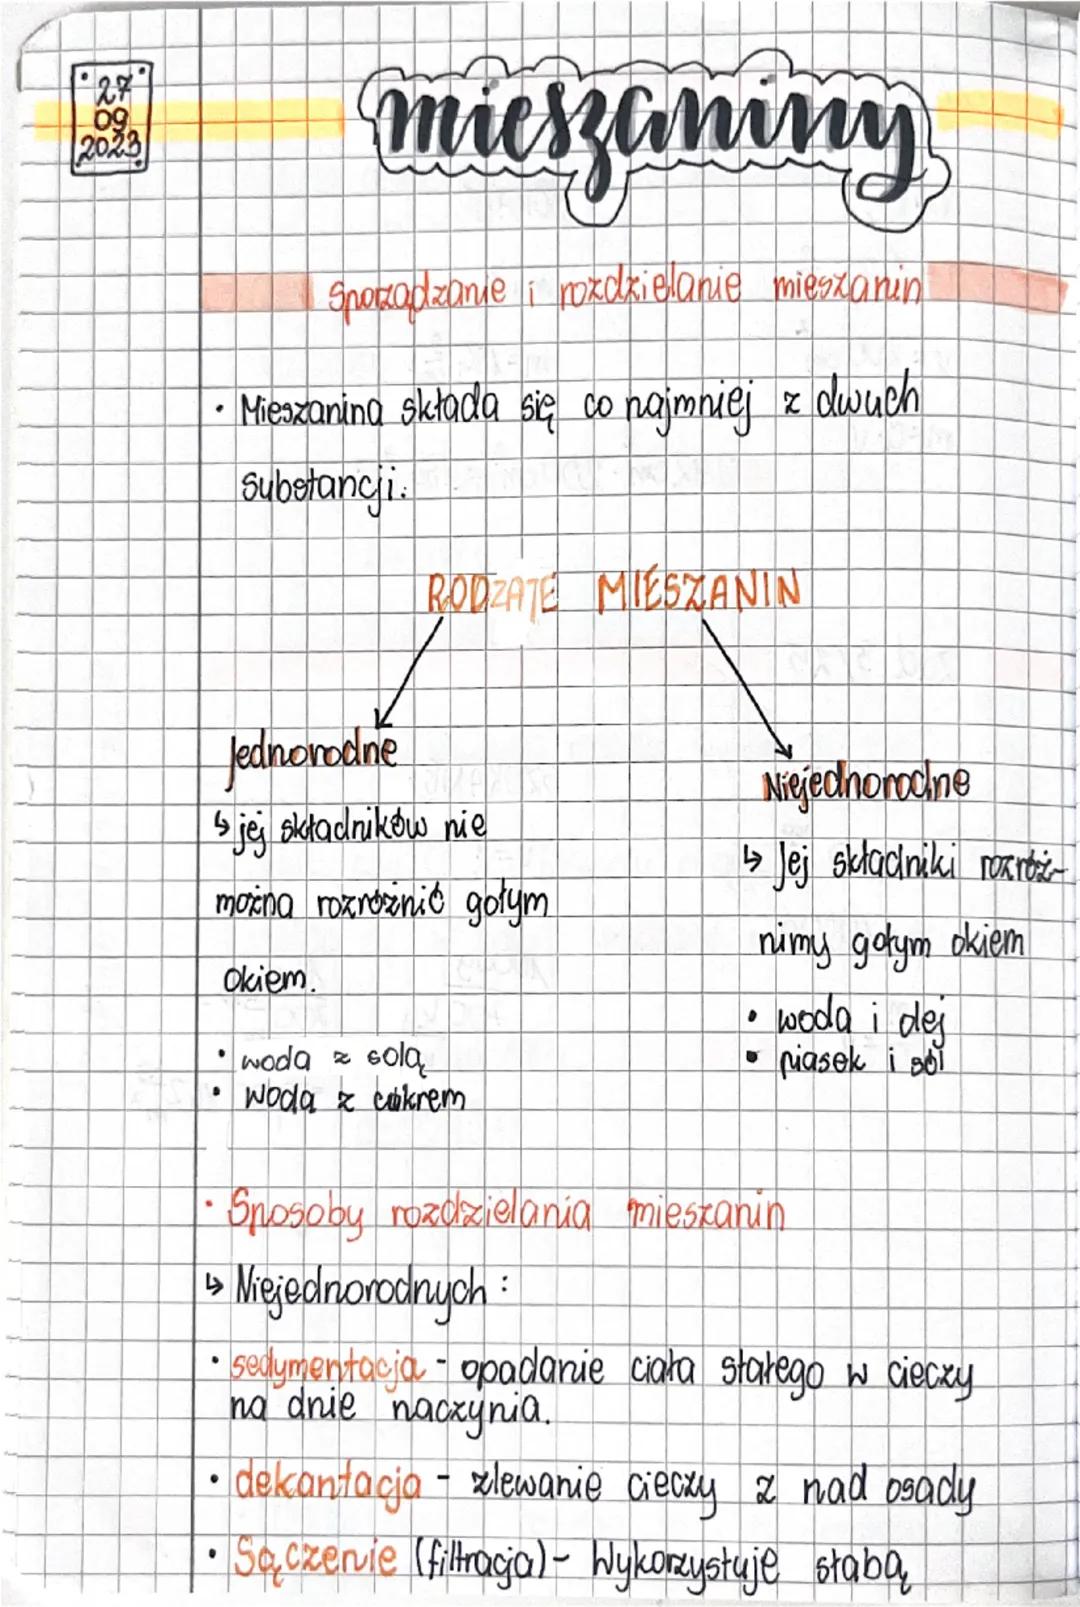 27
09
2023
mieszaniny
Sporządzanie i rozdzielanie mieszanin
• Mieszanina składa się co najmniej z dwuch
substancji.
RODZAJE MIESZANIN
Jednorodne
↳ jej składników nie
można rozróżnić gołym
okiem.
• woda z solą
• woda z cukrem
Niejednorodne
↳ Jej składniki rozróż-
nimy gołym okiem
• woda i olej
• piasek i sól
• Sposoby rozdzielania mieszanin
↳ Niejednorodnych:
• sedymentacja - opadanie ciała stałego w cieczy
na dnie naczynia.
• dekantacja - zlewanie cieczy z nad osady
• Sączenie (filtracja) - Wykorzystuje słabą